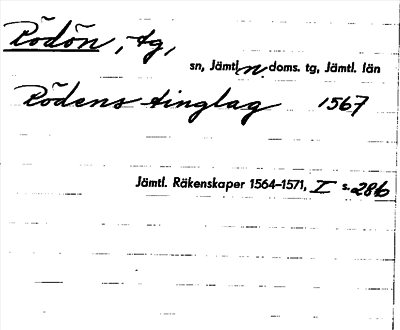 Rödön, tg,
sn, Jämtl. n. doms. tg, Jämtl. län
Rödens tinglag 1567
Jämtl. Räkenskaper 1564–1571, I s. 286